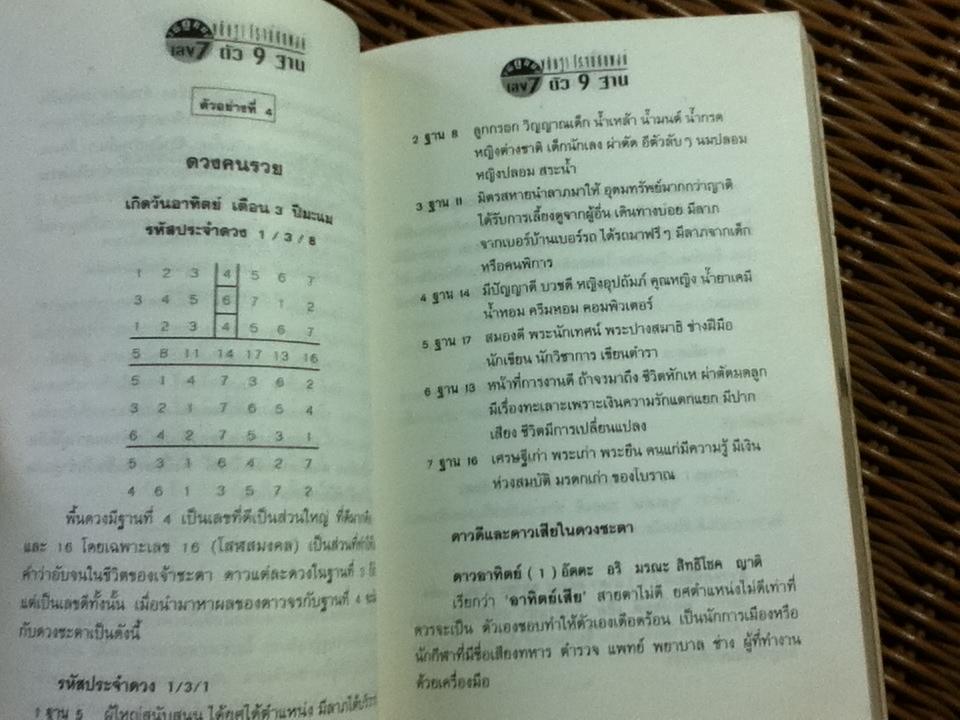 เลข 7 ตัว 9 ฐาน
ตัวอย่างที่ 4
ดวงคนรวย
เกิดวันอาทิตย์ เดือน 3 ปีมะแม
รหัสประจำดวง 1/3/8
1 2 3 4 5 6 7
3 4 5 6 7 1 2
1 2 3 4 5 6 7
5 8 11 14 17 13 16
5 1 4 7 3 6 2
3 2 1 7 6 5 4
6 4 2 7 5 3 1
5 3 1 6 4 2 7
4 6 1 3 5 7 2
พื้นดวงมีฐานที่ 4 เป็นเลขที่ดีเป็นส่วนใหญ่
และ 16 โดยเฉพาะเลข 16 (โสฬสมงคล) เป็นส่วนที่
คำว่าอับจนในชีวิตของเจ้าชะตา ดาวแต่ละดวงในฐานที่
แต่เป็นเลขดีทั้งนั้น เมื่อนำมาหาผลของดาวจรกับฐานที่ 4
กับดวงชะตาเป็นดังนี้
รหัสประจำดวง 1/3/1
1 ฐาน 5 ผู้ใหญ่สนับสนุน ได้ยศได้ตำแหน่ง
เลข 7 ตัว 9 ฐาน
2 ฐาน 8 ลูกกรอก วิญญาณเด็ก น้ำเหล้า น้ำมนต์ น้ำกรด
หญิงต่างชาติ เด็กนักเลง ผ่าตัด อีตัวลับๆ นมปลอม
หญิงปลอม สระน้ำ
3 ฐาน 11 มิตรสหายนำลาภมาให้ อุดมทรัพย์มากกว่าญาติ
ได้รับการเลี้ยงดูจากผู้อื่น เดินทางบ่อย มีลาภ
จากเบอร์บ้านเบอร์รถ ได้รถมาฟรีๆ มีลาภจากเด็ก
หรือคนพิการ
4 ฐาน 14 มีปัญญาดี บวชดี หญิงอุปถัมภ์ คุณหญิง น้ำยาเคมี
น้ำหอม ครีมหอม คอมพิวเตอร์
5 ฐาน 17 สมองดี พระนักเทศน์ พระปางสมาธิ ช่างฝีมือ
นักเขียน นักวิชาการ เขียนตำรา
6 ฐาน 13 หน้าที่การงานดี ถ้าจรมาถึง ชีวิตหักเห ผ่าตัดมดลูก
มีเรื่องทะเลาะเพราะเงินความรักแตกแยก มีปาก
เสียง ชีวิตมีการเปลี่ยนแปลง
7 ฐาน 16 เศรษฐีเก่า พระเก่า พระยืน คนแก่มีความรู้ มีเงิน
ห่วงสมบัติ มรดกเก่า ของโบราณ
ดาวดีและดาวเสียในดวงชะตา
ดาวอาทิตย์ (1) อัตตะ อริ มรณะ สิทธิโชค ญาติ
เรียกว่า 'อาทิตย์เสีย' สายตาไม่ดี ยศตำแหน่งไม่ดีเท่าที่
ควรจะเป็น ตัวเองชอบทำให้ตัวเองเดือดร้อน เป็นนักการเมืองหรือ
นักกีฬาที่มีชื่อเสียงทหาร ตำรวจ แพทย์ พยาบาล ช่าง ผู้ที่ทำงาน
ด้วยเครื่องมือ